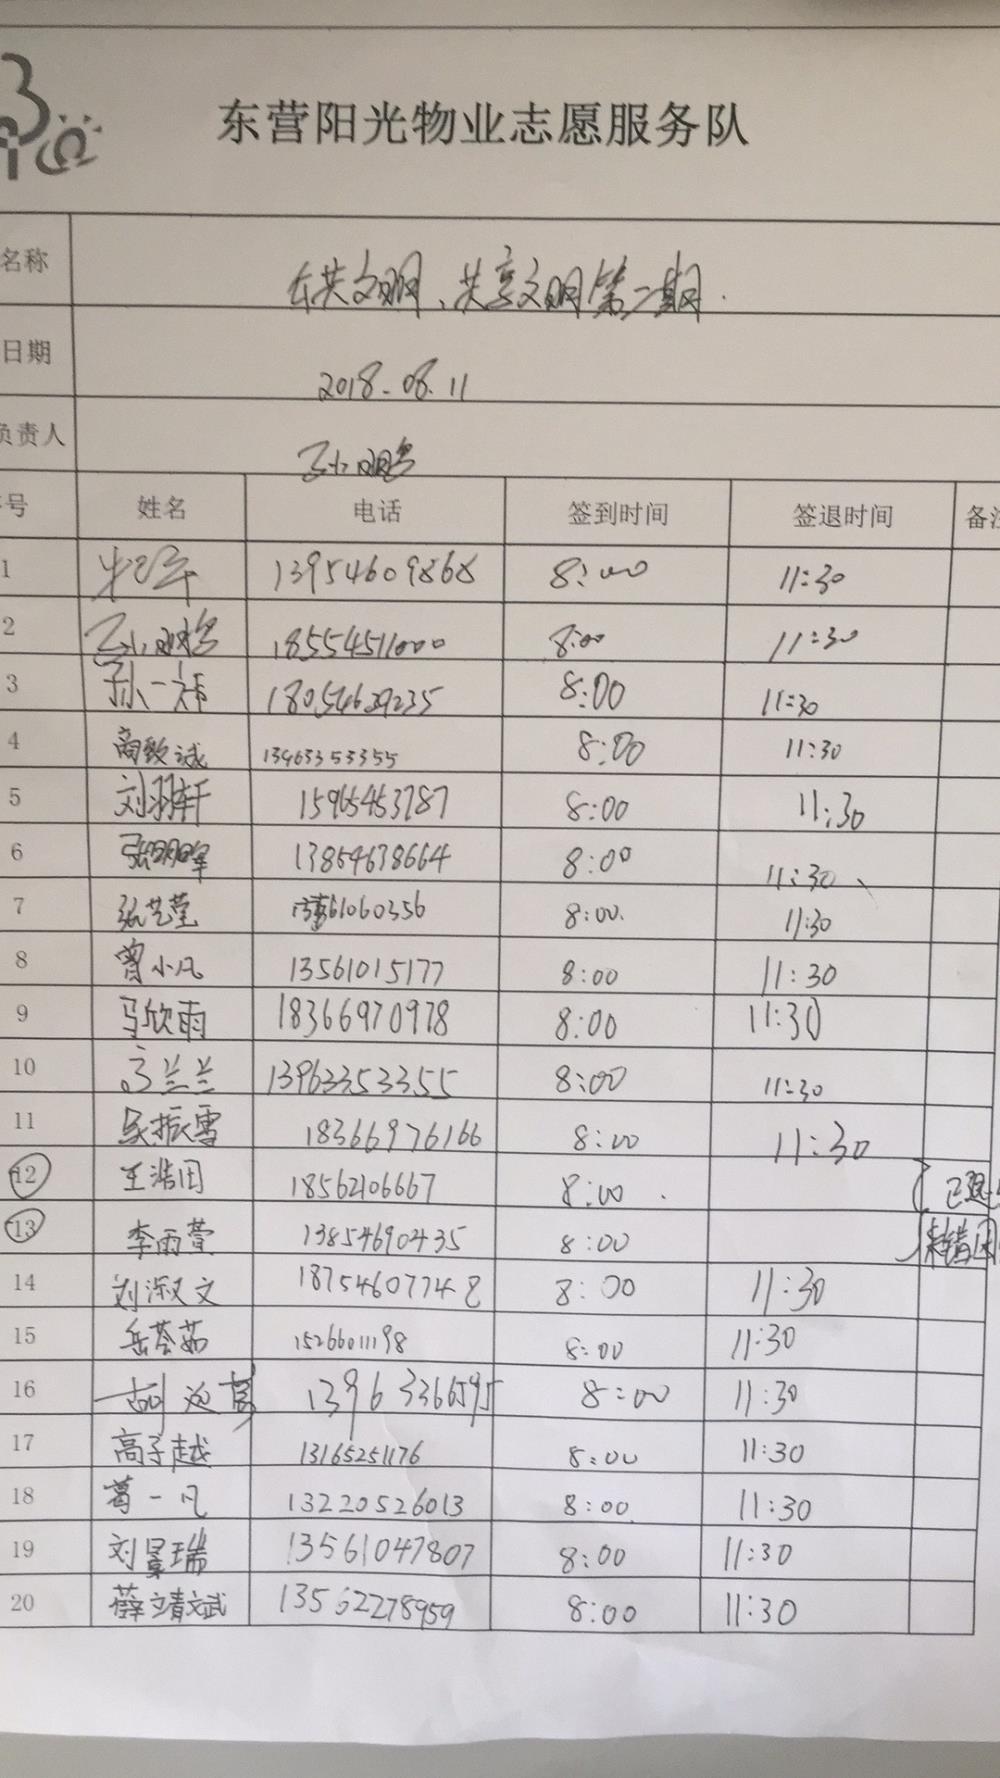 东营阳光物业志愿服务队
名称 共文明、共享文明第二期.
日期 2018.08.11
负责人
号 姓名 电话 签到时间 签退时间 备注
1 13954609868 8:00 11:30
2 18554511000 8:00 11:30
3 孙一祎 18054629235 8:00 11:30
4 商致诚 13963353355 8:00 11:30
5 刘羽轩 15965453787 8:00 11:30
6 13854638664 8:00 11:30
7 张艺莹 61060356 8:00. 11:30
8 曾小凡 13561015177 8:00 11:30
9 马欣雨 18366970978 8:00 11:30
10 高兰兰 13963353355 8:00 11:30
11 吴振雪 18366976166 8:00 11:30
12 王浩田 18562106667 8:00
13 李雨萱 13854690435 8:00
14 刘淑文 18754607748 8:00 11:30
15 岳荟茹 15266011198 8:00 11:30
16 胡 13963366595 8:00 11:30
17 高子越 13165251176 8:00 11:30
18 葛一凡 13220526013 8:00 11:30
19 刘景瑞 13561047807 8:00 11:30
20 薛靖斌 13562278959 8:00 11:30